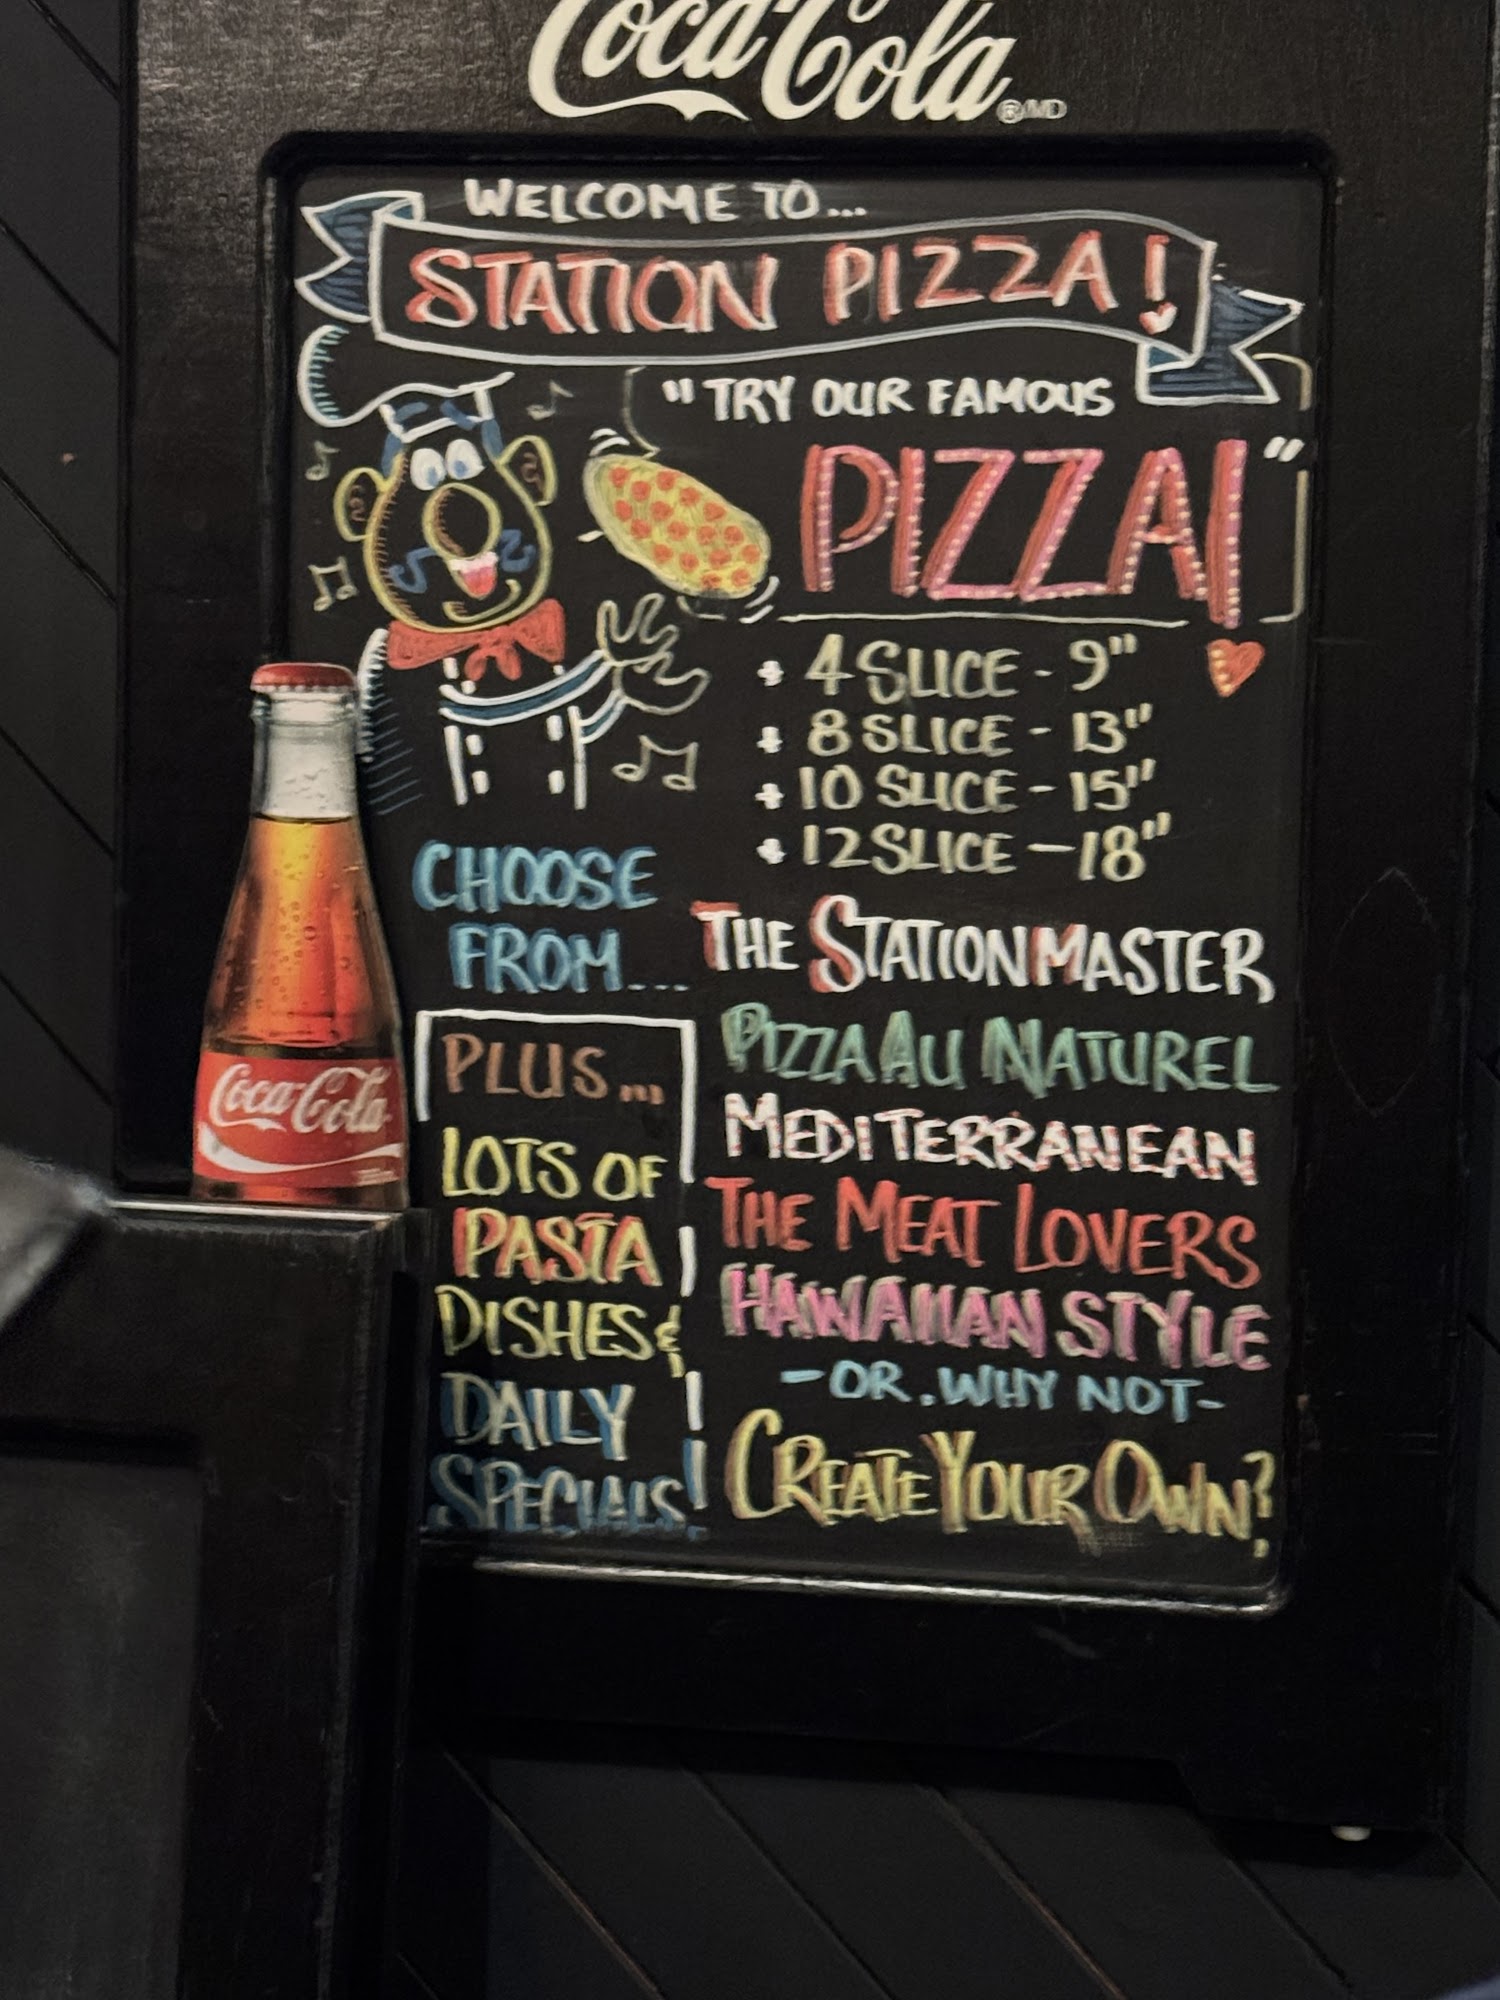 Coca-Cola ®/MD
WELCOME TO...
STATION PIZZA!
"TRY OUR FAMOUS
PIZZA!"
4 SLICE - 9"
8 SLICE - 13"
10 SLICE - 15"
12 SLICE - 18"
CHOOSE
FROM...
THE STATIONMASTER
PIZZA AU NATUREL
MEDITERRANEAN
THE MEAT LOVERS
HAWAIIAN STYLE
- OR. WHY NOT -
CREATE YOUR OWN?
PLUS...
LOTS OF
PASTA
DISHES &
DAILY
SPECIALS!
Coca-Cola